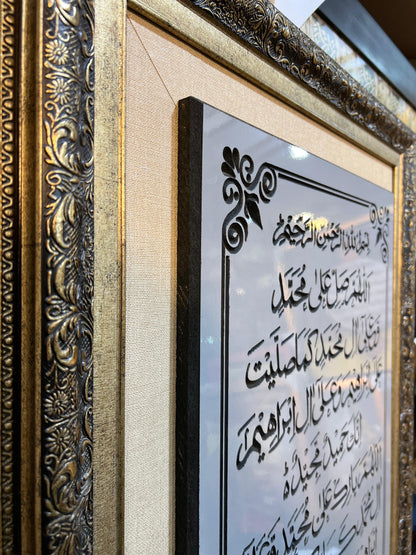 بسم الله الرحمن الرحيم
اللهم صل على محمد
وعلى آل محمد كما صليت
على ابراهيم وعلى آل ابراهيم
انك حميد مجيد
اللهم بارك على محمد وعلى
آل محمد كما باركت